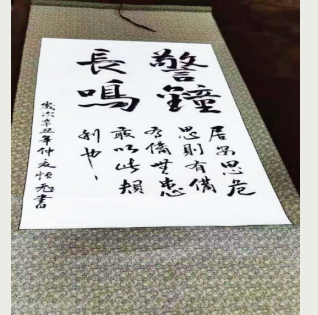 警鐘
長鳴
居安思危
思則有備
有備無患
敢以此
也
歲次辛丑年仲夏書